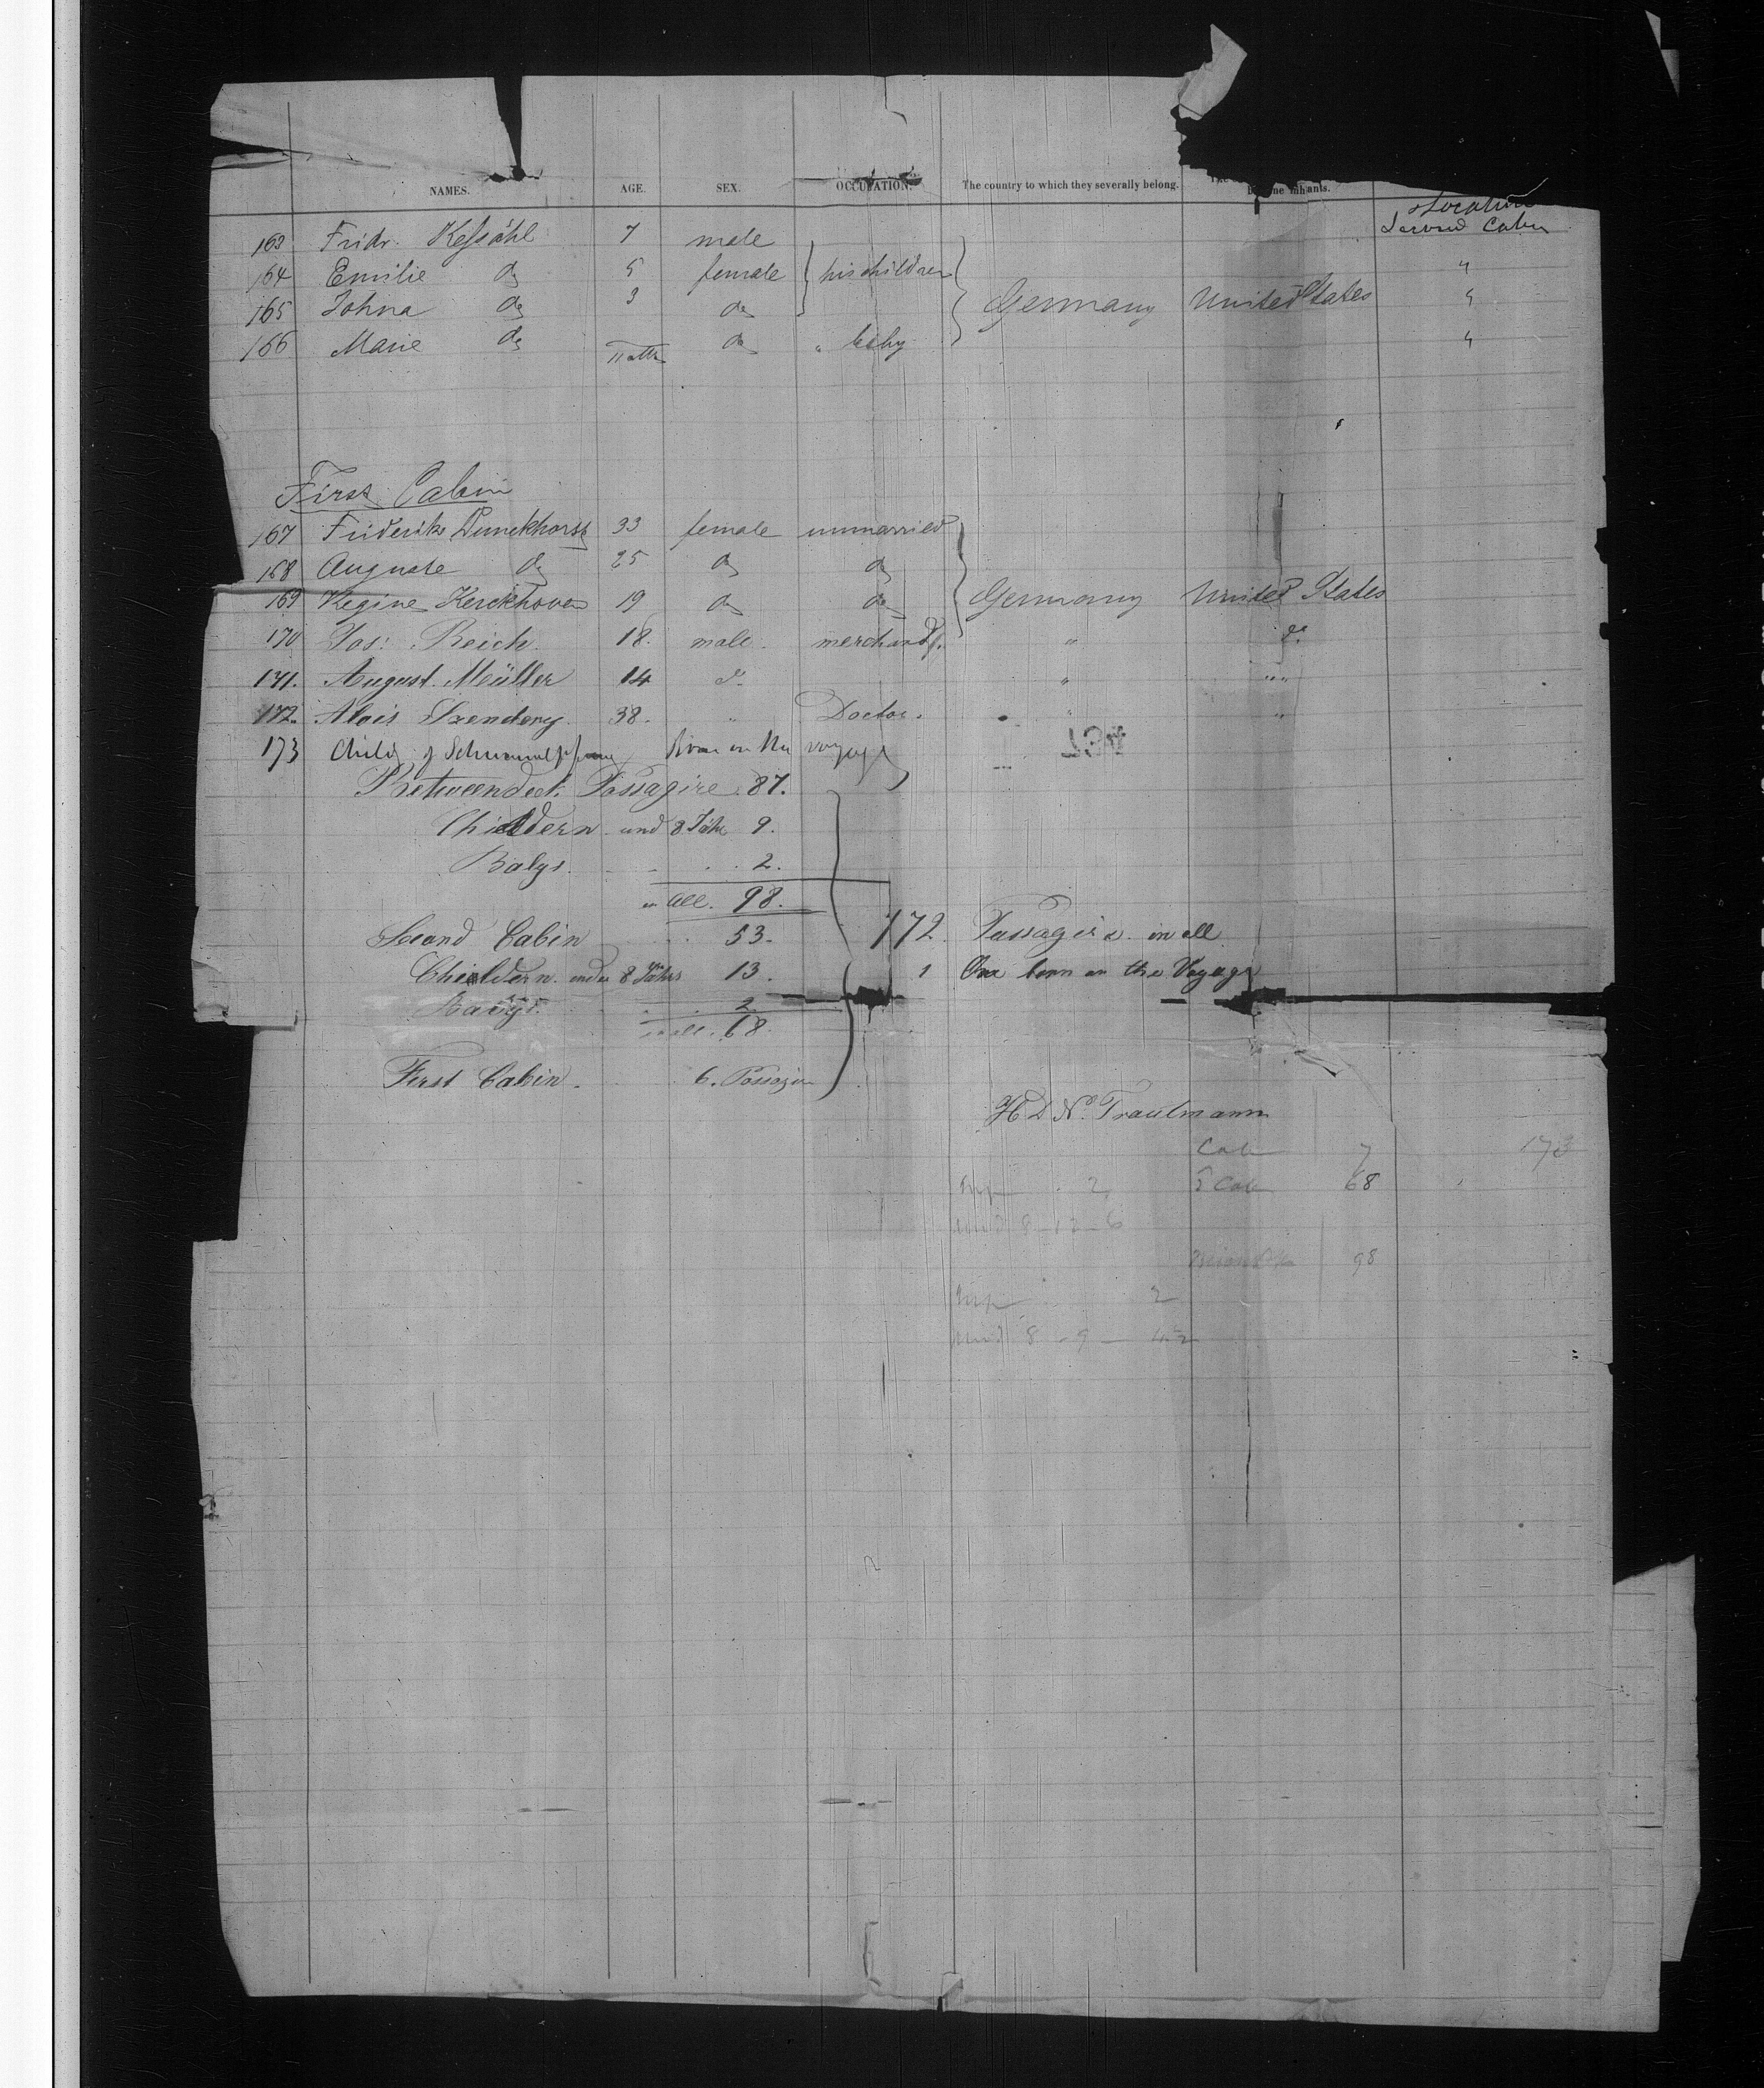 NAMES. AGE. SEX. OCCUPATION. The country to which they severally belong. inhants.
Second Cabin
163 Fridr. Keſsähl 7 male
164 Emilie do 5 female his children "
165 Johna do 3 do Germany United States "
166 Marie do 11 Mth do " baby "
First Cabin
167 Friderike Dunckhorst 33 female unmarried
168 Auguste do 25 do do
169 Regine Kerckhoven 19 do do Germany United States
170 Jos: Reich. 18. male. merchand. " do.
171. August. Müller 14 do. " " "
172. Alois Szendery. 38. " Doctor. " "
173 Child of born on the voyage
Betweendeck Passagire. 87.
Chieldern und 8 Jähr 9.
Babys. 2.
in all. 98.
Secand Cabin 53.
172. Passagire. in all.
Chieldern. under 8 Jährs 13.
1 One born on the Voyage
Babys. 2.
in all. 68.
First Cabin. 6. Passagire
H D N. Trautmann
Cab 7 173
2 S Cab 68
und 8 - 13 - 6
98
2
und 8 - 9 -